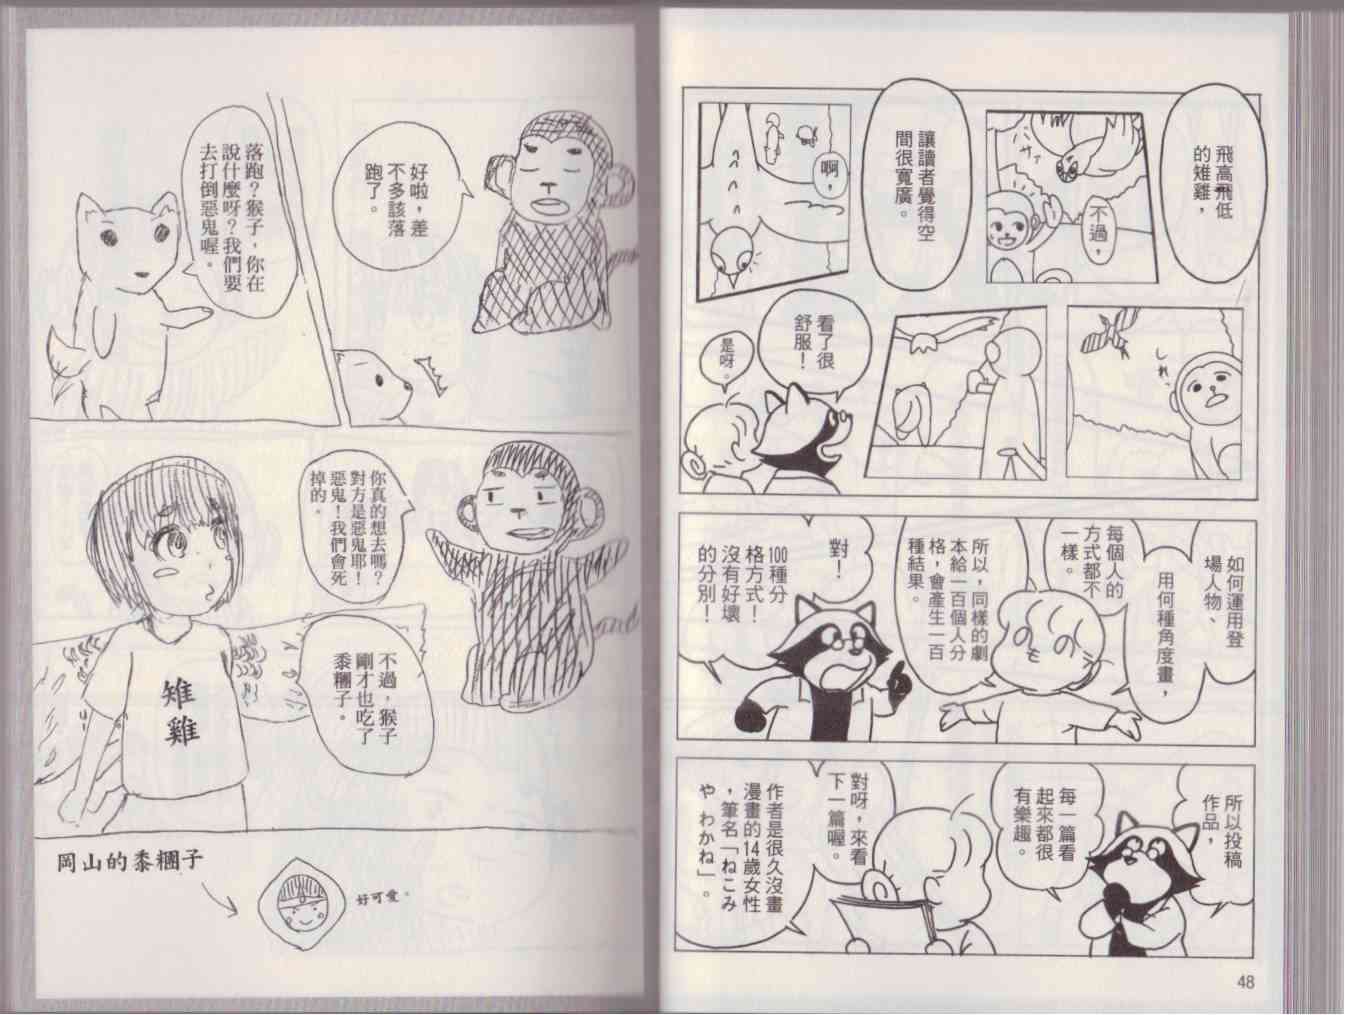 飛高飛低
的雉雞，
不過，
讓讀者覺得空
間很寬廣。
啊，
しれっ
看了很
舒服！
是呀。
如何運用登
場人物、
用何種角度畫，
每個人的
方式都不
一樣。
所以，同樣的劇
本給一百個人分
格，會產生一百
種結果。
對！
100種分
格方式！
沒有好壞
的分別！
所以投稿
作品，
每一篇看
起來都很
有樂趣。
對呀，來看
下一篇喔。
作者是很久沒畫
漫畫的14歲女性
，筆名「ねこみ
や わかね」。
48
好啦，差
不多該落
跑了。
落跑？猴子，你在
說什麼呀？我們要
去打倒惡鬼喔。
你真的想去嗎？
對方是惡鬼耶！
惡鬼！我們會死
掉的。
不過，猴子
剛才也吃了
黍糰子。
雉雞
岡山的黍糰子
好可愛。